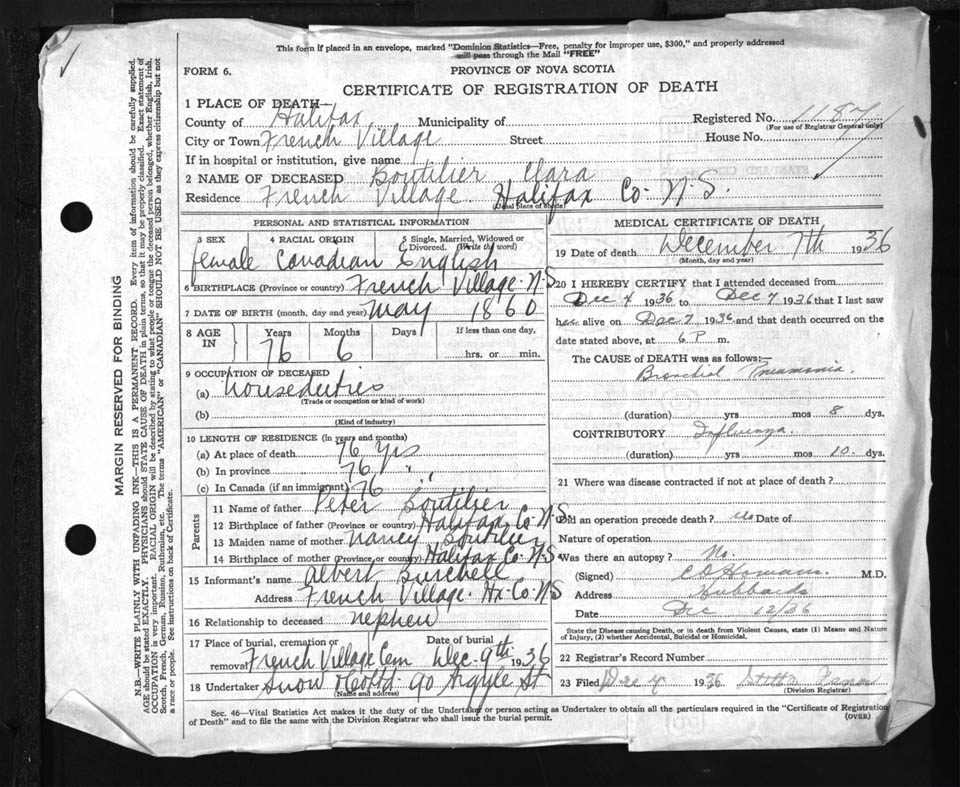 This form if placed in an envelope, marked "Dominion Statistics—Free, penalty for improper use, $300," and properly addressed
will pass through the Mail "FREE"
FORM 6.
PROVINCE OF NOVA SCOTIA
CERTIFICATE OF REGISTRATION OF DEATH
1 PLACE OF DEATH—
County of Halifax Municipality of Registered No. 1187
(For use of Registrar General only)
City or Town French Village Street House No.
If in hospital or institution, give name
2 NAME OF DECEASED Boutilier Clara
Residence French Village Halifax Co. N.S.
(Usual place of abode)
PERSONAL AND STATISTICAL INFORMATION
3 SEX 4 RACIAL ORIGIN 5 Single, Married, Widowed or Divorced. (Write the word)
female Canadian English
6 BIRTHPLACE (Province or country) French Village. N.S
7 DATE OF BIRTH (month, day and year) May 1860
8 AGE IN Years Months Days If less than one day,
76 6 hrs. or min.
9 OCCUPATION OF DECEASED
(a) Houseduties
(Trade or occupation or kind of work)
(b)
(Kind of industry)
10 LENGTH OF RESIDENCE (in years and months)
(a) At place of death 76 yrs
(b) In province 76 "
(c) In Canada (if an immigrant) 76 "
Parents
11 Name of father Peter Boutilier
12 Birthplace of father (Province or country) Halifax Co N.S
13 Maiden name of mother Nancy Boutilier
14 Birthplace of mother (Province or country) Halifax Co. N.S
15 Informant's name Albert Burchell
Address French Village. Hx. Co. N.S
16 Relationship to deceased nephew
17 Place of burial, cremation or removal Date of burial
French Village Cem Dec. 9th 1936
18 Undertaker Snow & Co Ltd 90 Argyle St
(Name and address)
MEDICAL CERTIFICATE OF DEATH
19 Date of death December 7th 1936
(Month, day and year)
20 I HEREBY CERTIFY that I attended deceased from
Dec 4 1936 to Dec 7 1936 that I last saw
her alive on Dec 7 1936 and that death occurred on the
date stated above, at 6 P. m.
The CAUSE OF DEATH was as follows:—
Bronchial Pneumonia.
(duration) yrs mos 8 dys.
CONTRIBUTORY Influenza.
(duration) yrs mos 10 dys.
21 Where was disease contracted if not at place of death?
Did an operation precede death? No Date of
Nature of operation
Was there an autopsy? No.
(Signed) M.D.
Address Hubbards
Date Dec 12/36
State the Disease causing Death, or in death from Violent Causes, state (1) Means and Nature
of Injury, (2) whether Accidental, Suicidal or Homicidal.
22 Registrar's Record Number
23 Filed Dec 1936
(Division Registrar)
Sec. 46—Vital Statistics Act makes it the duty of the Undertaker or person acting as Undertaker to obtain all the particulars required in the "Certificate of Registration
of Death" and to file the same with the Division Registrar who shall issue the burial permit.
(OVER)
MARGIN RESERVED FOR BINDING
N.B.—WRITE PLAINLY WITH UNFADING INK—THIS IS A PERMANENT RECORD. Every item of information should be carefully supplied.
AGE should be stated EXACTLY. PHYSICIANS should STATE CAUSE OF DEATH in plain terms, so that it may be properly classified. Exact statement of
OCCUPATION is very important. RACIAL ORIGIN will be described by stating to what people or tongue the deceased person belonged, whether English, Irish,
Scotch, French, German, Russian, Ruthenian, etc. The terms "AMERICAN" or "CANADIAN" SHOULD NOT BE USED as they express citizenship but not
a race or people. See instructions on back of Certificate.